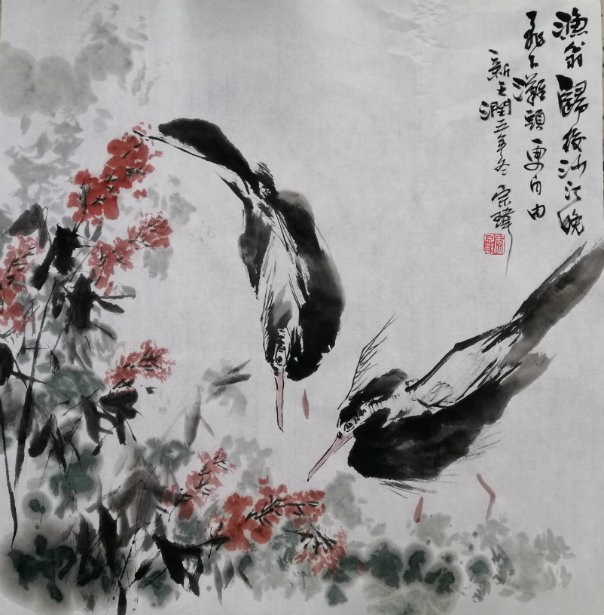 漁翁歸後沙汀晚
飛下灘頭更自由
三年冬 宗瑋